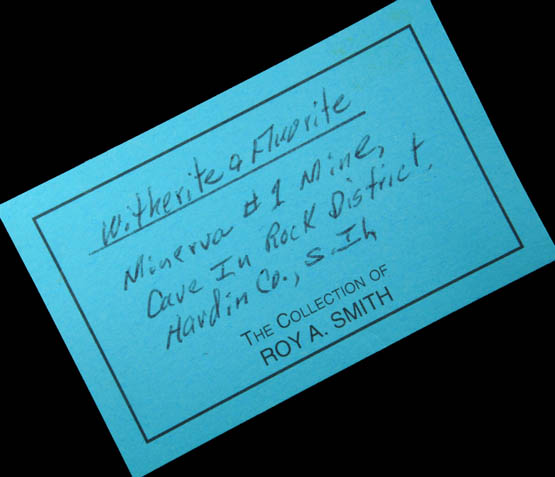 Witherite & Fluorite
Minerva #1 Mine,
Cave In Rock District,
Hardin Co., S. Ill
THE COLLECTION OF
ROY A. SMITH